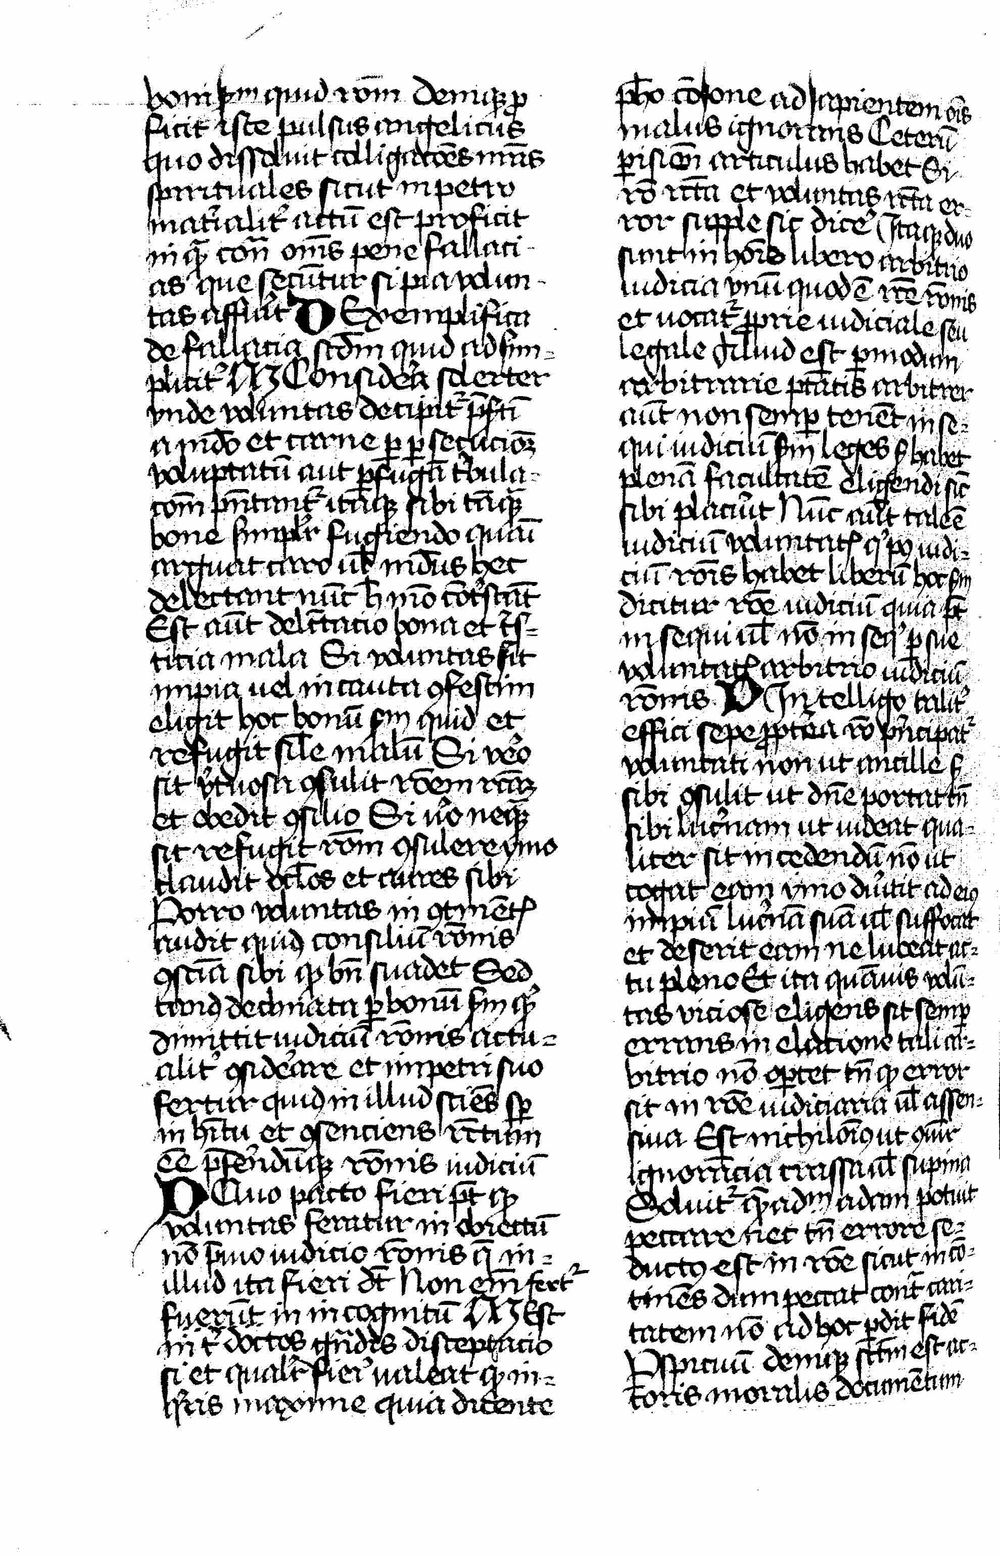 boni scdm quid rōm Demuqȝ p
ficit iste pulsus angelicus
quo dissoluit colligacōes mētis
spirituales sicut in petro
mat'ialit' actū est proficit
in q̄ cōn om̄s pene fallaci-
as que secūtur si pia volun-
tas affiu'it D Exemplifica
de fallacia scdm quid ad sim-
plicit' M Considera solerter
vnde voluntas decipit' p̄sti
a mdo et carne p psecucōȝ
voluptatū aut p fugā t'bula-
cōm p̄ntant' itaqȝ sibi tāqȝ
bone simplr fugiendo quāuis
arguat caro ul mdus hec
delectant nūc h mō cōt'stāt
Est aūt delectacio bona et t's-
ticia mala Si voluntas sit
impia vel incauta ꝯfestim
eligit hoc bonū scdm quid et
refugit sile malū Si vero
sit v'tuosa ꝯsulit rōem rcāȝ
et obedit ꝯsilio Si v'o neqȝ
sit refugit rōm ꝯsulere ymo
claudit oclos et aures sibi
Porro voluntas in ꝯtinēti
audit quid consiliū rōnis
ꝯsciā sibi qp bn suadet Sed
declinata p bonū scdm q
dimittit iudiciū rōnis actu-
alit' ꝯsid'are et impetu suo
fertur quid in illud sciēs sp
in hītu et ꝯsenciens rectum
eē p̄ferēdūqȝ rōnis iudiciū
D Quo pacto fieri pt qp
voluntas feratur in obiectū
nō p'mo iudicio rōnis q in-
illud ita fieri dt Non em fert'
fuerūt in incognitū M Est
int' doctos grādis disceptacio
si et qualit' fieri valeat qp in-
hr'is maxime quia dicente
pho cōsone ad sapientem ois
malus ignorans Ceterū
pisien articulus habet Si
rō rcta et voluntas rcta er-
ror supple sic dicē Itaqȝ duo
sunt in hōis libero arbitrio
iudicia vnū quod ē rōe rōnis
et vocat' pprie iudiciale seu
legale Aliud est p modum
arbitrarie ptātis arbitrer
aūt non semp tenet' in se-
qui iudiciū scdm leges s habet
plenā facultatē eligendi sic
sibi placuit Nūc aūt tale ē
iudiciū voluntat' q po iudi-
ciū rōis habet liberū hoc scdm
dicitur rōe iudiciū quia pt
insequi ul nō inseq' p sue
voluntat' arbitrio iudiciū
rōnis D Intelligo talit'
effici sepe ppterea rō p'ncipat'
voluntati non ut ancille s
sibi ꝯsulit ut dne portat tn
sibi luc'nam ut uideat qua-
liter sit incedendū nō ut
cogat eam ymo diu'tit ad eiꝰ
impiū luc'nā suā ul suffocat
et deserit eam ne luceat ac-
tu pleno Et ita quāuis volū-
tas viciose eligens sit semp
errans in elatione tali ar-
bitrio nō optet tn qp error
sit in rōe iudiciaria ul assen-
siua Est nichilōiꝰ ut ꝯmr
ignorācia crassa ul supina
Soluit' q̄ adm adam potuit
peccare nec tn errore se-
ductꝰ est in rōe sicut in cō-
tinēs dum peccat cont' cari-
tatem nō ad hoc pdit fidē
Pspicuū demuqȝ scdm est ac-
toris moralis documētum